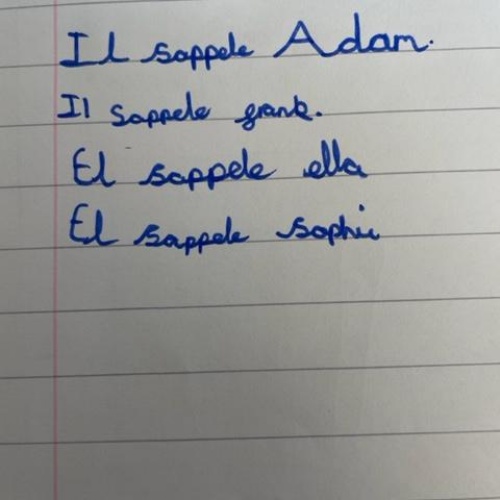 Il sappele Adam.
Il sappele frank.
El sappele ella
El sappele sophie